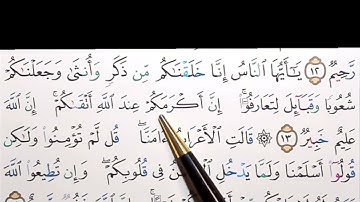 رَّحِيمٌ ١٢ يَـٰٓأَيُّهَا ٱلنَّاسُ إِنَّا خَلَقْنَـٰكُم مِّن ذَكَرٍ وَأُنثَىٰ وَجَعَلْنَـٰكُمْ
شُعُوبًا وَقَبَآئِلَ لِتَعَارَفُوٓا۟ ۚ إِنَّ أَكْرَمَكُمْ عِندَ ٱللَّهِ أَتْقَىٰكُمْ ۚ إِنَّ ٱللَّهَ
عَلِيمٌ خَبِيرٌ ١٣ ۞ قَالَتِ ٱلْأَعْرَابُ ءَامَنَّا ۖ قُل لَّمْ تُؤْمِنُوا۟ وَلَـٰكِن
قُولُوٓا۟ أَسْلَمْنَا وَلَمَّا يَدْخُلِ فِى قُلُوبِكُمْ ۖ وَإِن تُطِيعُوا۟ ٱللَّهَ